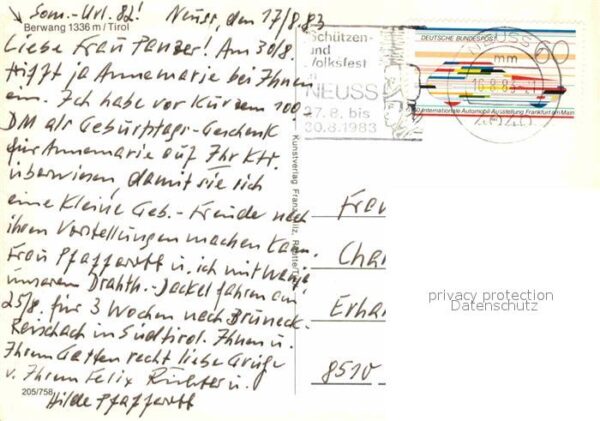 Som.-Url. 82!
Neuss, den 17/8.83
Berwang 1336 m / Tirol
Liebe Frau Panzer! Am 30/8.
trifft ja Annemarie bei Ihnen
ein. Ich habe vor kurzem 100
DM als Geburtstags-Geschenk
für Annemarie auf Ihr Kto.
überwiesen, damit sie sich
eine kleine Geb.-Freude nach
ihren Vorstellungen machen kann.
Frau Pfaffarott u. ich mit
unserem Drahth.-Jackel fahren am
25/8. für 3 Wochen nach Bruneck-
Reischach in Südtirol. Ihnen u.
Ihrem Gatten recht liebe Grüße
v. Ihrem Felix Richter u.
Hilde Pfaffarott
205/758
Kunstverlag Franz
Schützen-
und
Volksfest
in
NEUSS
27.8. bis
30.8.1983
DEUTSCHE BUNDESPOST
60
50 Internationale Automobil-Ausstellung Frankfurt am Main
NEUSS
mm
Erhar
8510
privacy protection
Datenschutz